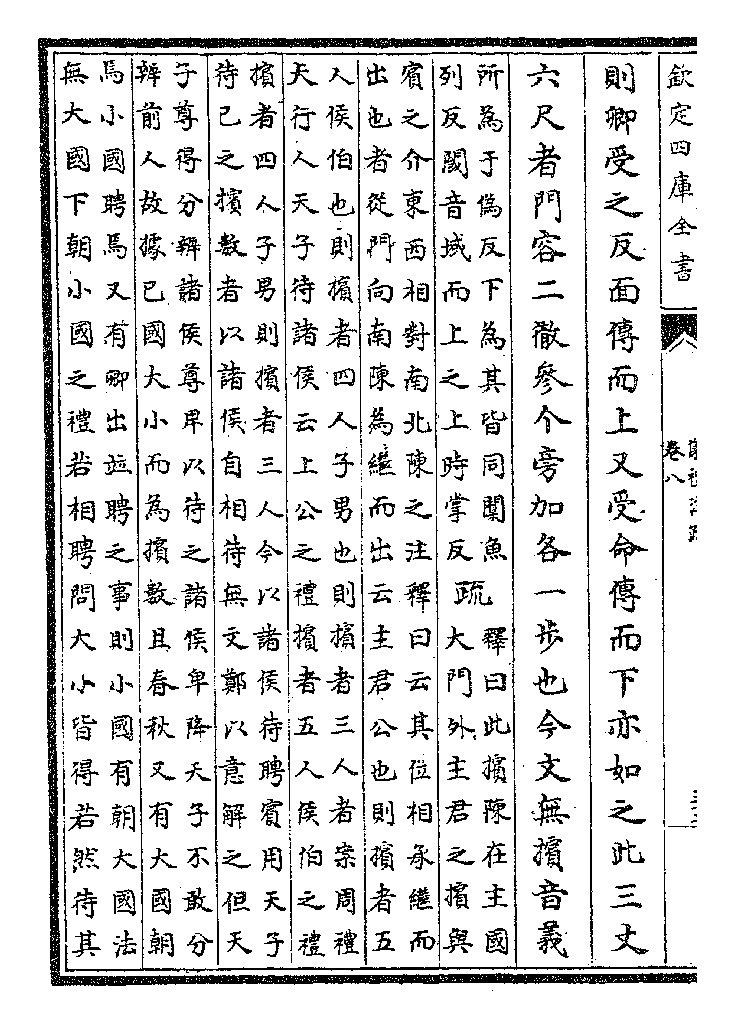 欽定四庫全書
卷八
則卿受之反面傳而上又受命傳而下亦如之此三丈
六尺者門容二徹參个旁加各一步也今文無擯音義
所為于偽反下為其皆同闑魚
列反閾音域而上之上時掌反
疏
釋曰此擯陳在主國
大門外主君之擯與
賓之介東西相對南北陳之注釋曰云其位相承繼而
出也者從門向南陳為繼而出云主君公也則擯者五
人侯伯也則擯者四人子男也則擯者三人者案周禮
天行人天子待諸侯云上公之禮擯者五人侯伯之禮
擯者四人子男則擯者三人今以諸侯待聘賓用天子
待己之擯數者以諸侯自相待無文鄭以意解之但天
子尊得分辨諸侯尊卑以待之諸侯卑降天子不敢分
辨前人故據已國大小而為擯數且春秋又有大國朝
馬小國聘馬又有卿出並聘之事則小國有朝大國法
無大國下朝小國之禮若相聘問大小皆得若然待其